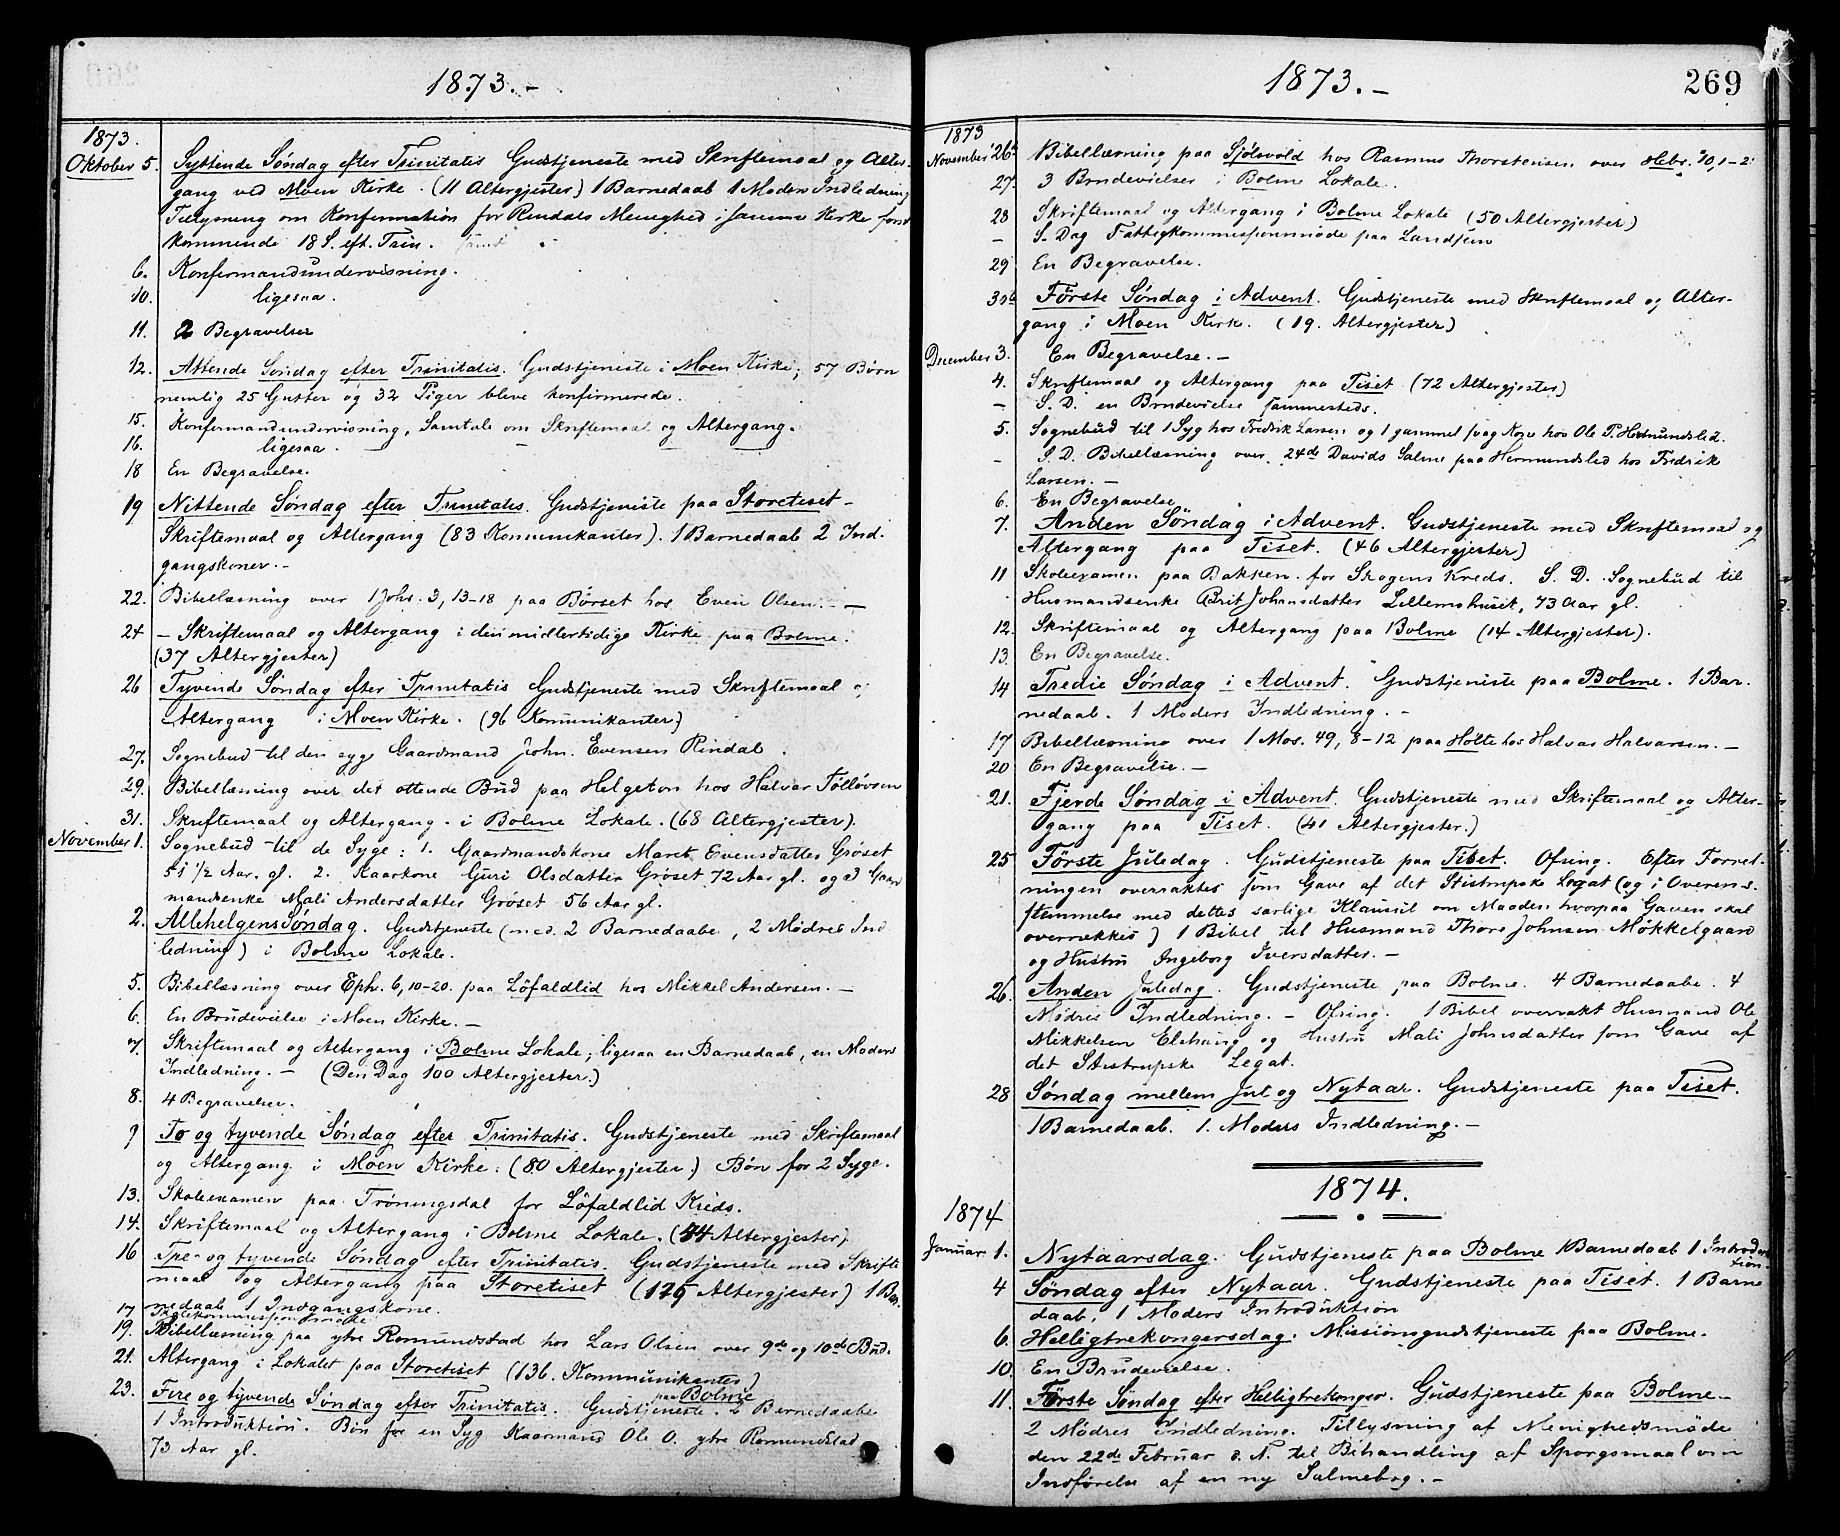 1873.-
1873.
Oktober 5. Syttende Søndag efter Trinitatis Gudstjeneste med Skriftemaal og Alter-
gang ved Moen Kirke. (11 Altergjester) 1 Barnedaab 1 Moders Indledning
Tillysning om Konfirmation for Rindals Menighed i samme Kirke først
kommende 18 S. eft. Trin.
6. Konfirmandundervisning.
10. ligesaa.
11. 2 Begravelser
12. Attende Søndag efter Trinitatis. Gudstjeneste i Moen Kirke; 57 Børn
nemlig 25 Gutter og 32 Piger bleve konfirmerede.
15. Konfirmandundervisning, Samtale om Skriftemaal og Altergang.
16. ligesaa. - - -
18 En Begravelse.
19 Nittende Søndag efter Trinitatis. Gudstjeneste paa Storetiset-
Skriftemaal og Altergang (83 Komunikanter). 1 Barnedaab 2 Ind-
gangskoner.-
22. Bibellæsning over 1 Johs. 3, 13-18 paa Børset hos Even Olsen. -
24 - Skriftemaal og Altergang i den midlertidige Kirke paa Bolme.
(37 Altergjester)
26 Tyvende Søndag efter Trinitatis Gudstjeneste med Skriftemaal og
Altergang i Moen Kirke. (96 Komunikanter)
27. Sognebud til den syge Gaardmand John Evensen Rindal.
29. Bibellæsning over det ottende Bud paa Helgeton hos Halvar Tølløvsen
31. Skriftemaal og Altergang. i Bolme Lokale. (68 Altergjester).
November 1. Sognebud til de Syge: 1. Gaardmandskone Maret Evensdatter Grøset
51 1/2 Aar. gl. 2. Kaarkone Guri Olsdatter Grøset 72 Aar gl. og 3 Gaard
mandsenke Mali Andersdatter Grøset 56 Aar gl.
2. AllehelgensSøndag. Gudstjeneste (med 2 Barnedaabe, 2 Mødres Ind
ledning) i Bolme Lokale.
5. Bibellæsning over Eph. 6, 10-20. paa Löfaldlid hos Mikkel Andersen.-
6. En Brudevielse i Moen Kirke.-
7. Skriftemaal og Altergang i Bolme Lokale; ligesaa en Barnedaab, en Moders
Indledning. - (Den Dag 100 Altergjester.)
8. 4 Begravelser.
9 To og tyvende Søndag efter Trinitatis. Gudstjeneste med Skriftemaal
og Altergang i Moen Kirke. (80 Altergjester.) Bøn for 2 Syge.
13. Skoleexamen paa Trøningsdal for Löfaldlid Kreds.
14. Skriftemaal og Altergang i Bolme Lokale. (Altergjester)
16 Tre- og tyvende Søndag efter Trinitatis. Gudstjeneste med Skrifte
maal og Altergang paa Storetiset (Altergjester) 1 Bar-
nedaab 1 Indgangskone.
17 Skolekommissionsmøde
19. Bibellæsning paa ytre Romundstad hos Lars Olsen over 9de og 10de Bud.
21. Altergang i Lokalet paa Storetiset (136. Kommunikanter)
23. Fire og tyvende Søndag efter Trinitatis. Gudstjeneste paa Bolme. 2 Barnedaabe
1 Introduktion. Bøn for en Syg Kaarmand Ole O. ytre Romundstad
73 Aar gl.
1873.-
269
1873
November 26de Bibellæsning paa Sjölsvold hos Rasmus Thorstensen over Hebr. 10, 1-2
27. 3 Brudevielser i Bolme Lokale.
28 Skriftemaal og Altergang i Bolme Lokale (50 Altergjester)
- S. Dag Fattigkommissionsmøde paa Landsem
29 En Begravelse.
30te Förste Søndag i Advent. Gudstjeneste med Skriftemaal og Alter-
gang i Moen Kirk. (19. Altergjester)
December 3. En Begravelse.-
4. Skriftemaal og Altergang paa Tiset (72 Altergjester)
- S. D. en Brudevielse sammesteds.
5. Sognebud til 1 Syg hos Fredrik Larsen og 1 gammel svag Kone hos Ole P. Hermundslid.
- S. D. Bibellæsning over 24de Davids Salme paa Hermundslid hos Fredrik
Larsen.-
6. En Begravelse
7. Anden Söndag i Advent. Gudstjeneste med Skriftemaal og
Altergang paa Tiset. (46 Altergjester)
11 Skoleexamen paa Bakken for Skogens Kreds. S. D. Sognebud til
Husmandsenke Brit Johansdatter Lillemohuset, 73 Aar gl.
12. Skriftemaal og Altergang paa Bolme (14 Altergjester).
13. En Begravelse.
14 Tredie Søndag i Advent. Gudstjeneste paa Bolme. 1 Bar-
nedaab. 1 Moders Indledning.-
17 Bibellæsning over 1 Mos. 49, 8-12 paa Holte hos Halvar Halvarsen.-
20 En Begravelse.-
21. Fjerde Søndag i Advent. Gudstjeneste med Skriftemaal og Alter-
gang paa Tiset. (41 Altergjester.)
25 Förste Juledag. Gudstjeneste paa Tiset. Ofring. Efter Forret-
ningen overraktes som Gave af det Stistrupske Legat (og i Overens-
stemmelse med dettes særlige Klausul om Maaden hvorpaa Gaven skal
overrækkes) 1 Bibel til Husmand Thore Johnsen Mökkelgaard
og Hustru Ingeborg Iversdatter.-
26. Anden Juledag. Gudstjeneste paa Bolme. 4 Barnedaabe. 4
Mødres Indledning. - Ofring. 1 Bibel overrakt Husmand Ole
Mikkelsen Elshaug og Hustru Mali Johnsdatter som Gave af
det Stistrupske Legat.
28 Søndag mellem Jul og Nytaar. Gudstjeneste paa Tiset.
1 Barnedaab. 1. Moders Indledning.-
1874.
1874
Januar 1. Nytaarsdag. Gudstjeneste paa Bolme 1 Barnedaab 1 Introduk-
tion
4 Søndag efter Nytaar. Gudstjeneste paa Tiset. 1 Barne
daab, 1 Moders Introduktion
6. Helligtrekongersdag. Missionsgudstjeneste paa Bolme.
10. En Brudevielse.
11. Förste Søndag efter Helligtrekonger. Gudstjeneste paa Bolme-
2 Mødres Indledning. Tillysning af Menighedsmøde
den 22de Februar d. A. til Behandling af Spørgsmaal om
Indførelse af en ny Salmebog.-